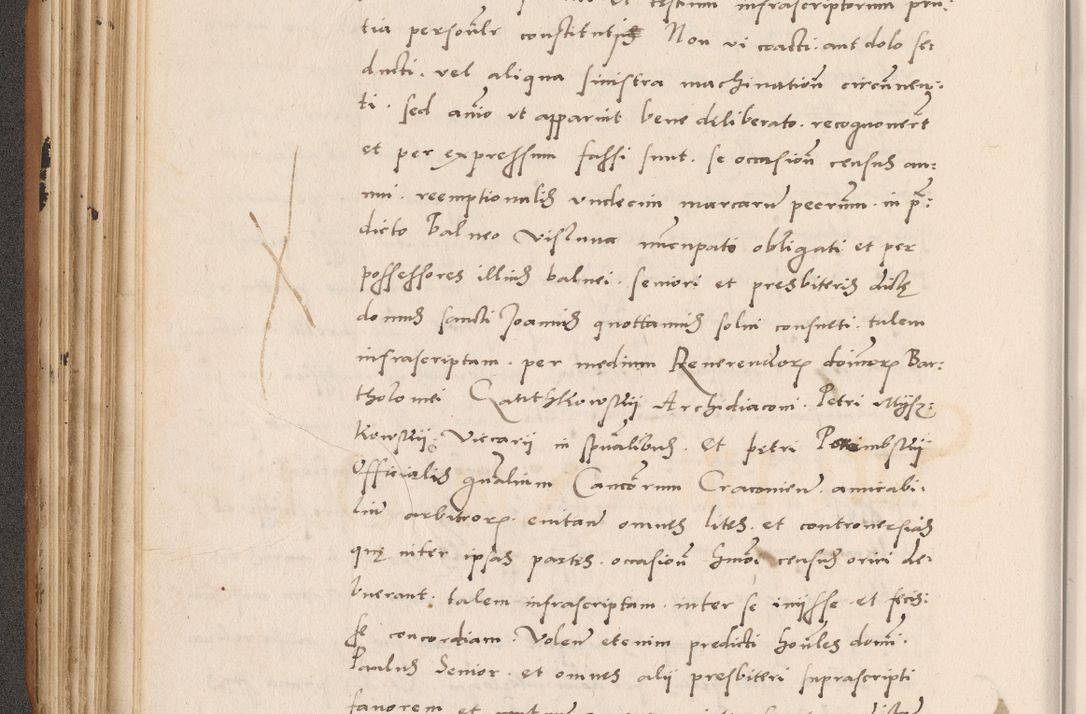 et testium infrascriptorum prn:
tia personlr constitutis Non vi coacti. aut dolo se:
ducti. vel aliqua sinistra machination circunuen:
ti. sed anio vt apparuit bene deliberato. recognouert
et per expressum fassi sunt. se occasion census an:
nui. reemptionalis vndecim marcarum pecunm. in p:
dicto Balneo Vislnna nuncupato obligati et per
possessores illius balnei. seniori et presbiteris dictę
domus sancti Joannis quottannis solui consueti. talem
infrascriptam. per medium Reuerendorum dominorum Bar:
tholomei Gantkowskij Archidiaconi. Petri Mysz:
kowskij: Vicarij in spualibus. Et petri Porembskij
Officialis gnalium Canconrum Cracouien. amicabi:
lium arbitrorum. euitan omnes lites. et controuersias
quę inter ipsas partes. occasion hmoi census oriri de:
buerant. talem infrascriptam. inter se inijsse et fecis:
se concordiam. Volen etenim predicti honles domi.
Paulus Senior. et omnes alij presbiteri suprascripti
fauorem et